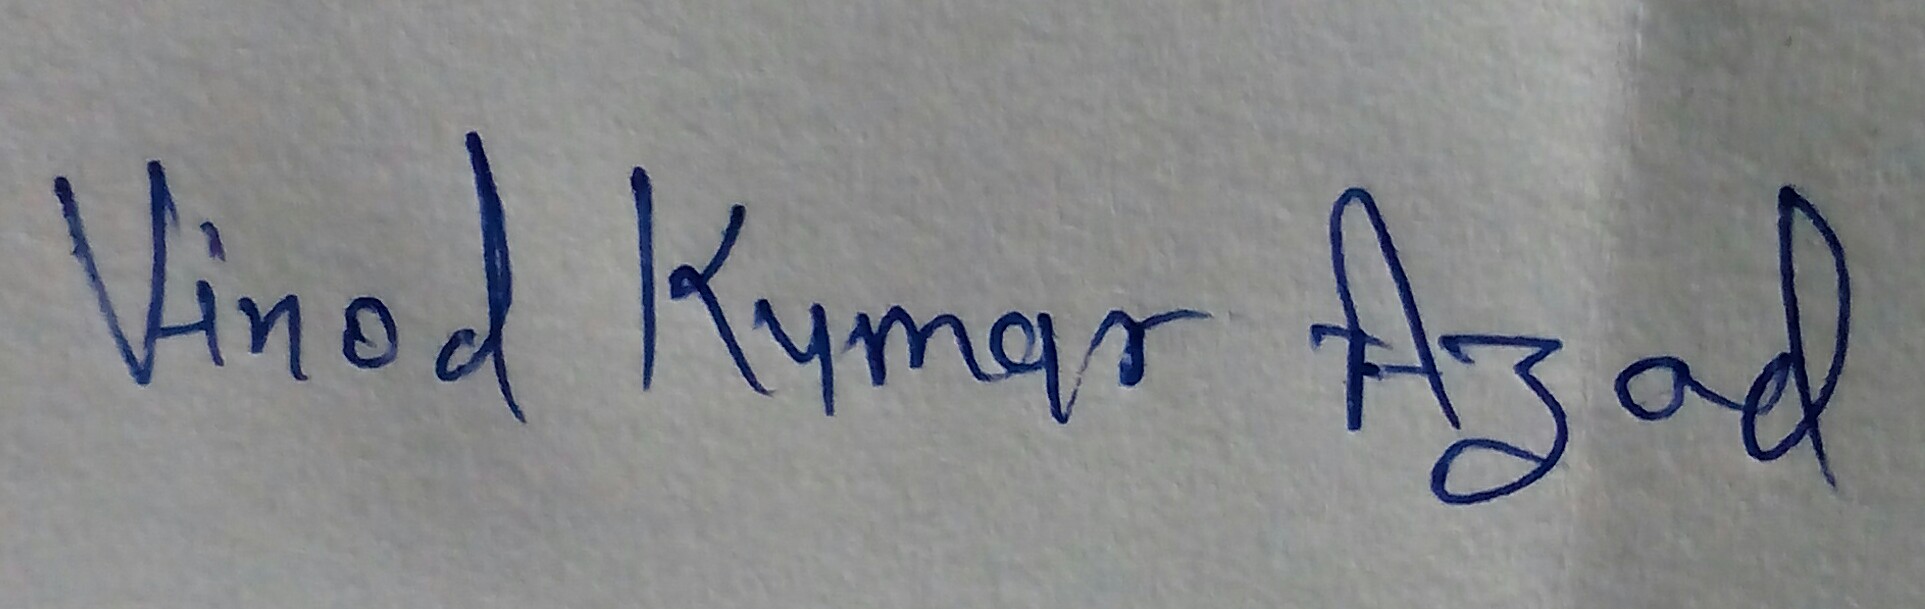 Vinod Kumar Azad